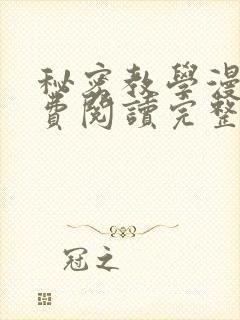 秘密教學漫
費閱讀完整
冠之